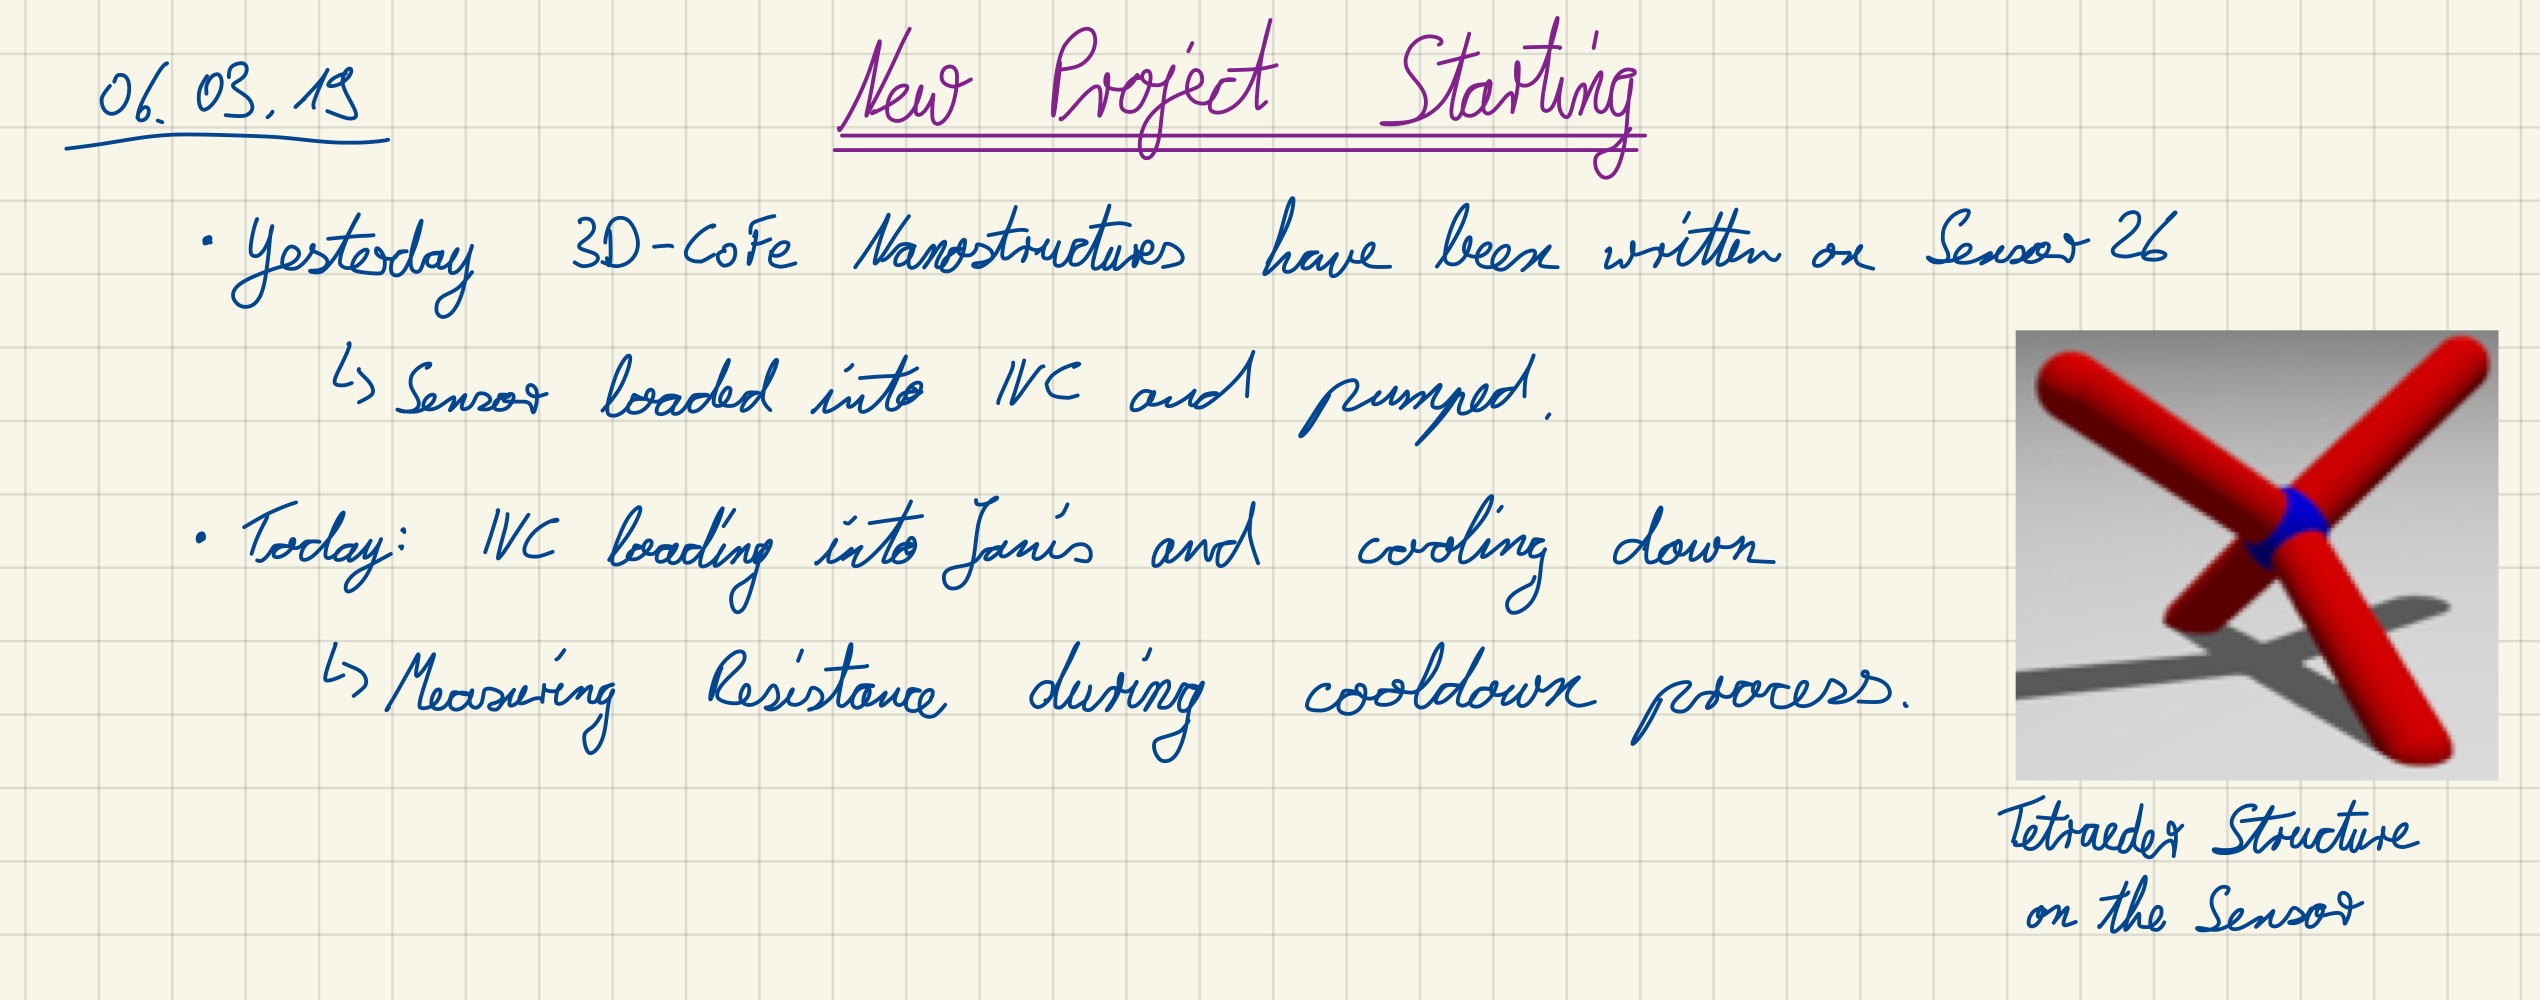 06.03.19
New Project Starting
· Yesterday 3D-CoFe Nanostructures have been written on Sensor 26
↳ Sensor loaded into IVC and pumped.
· Today: IVC loading into Janis and cooling down
↳ Measuring Resistance during cooldown process.
Tetraeder Structure
on the Sensor